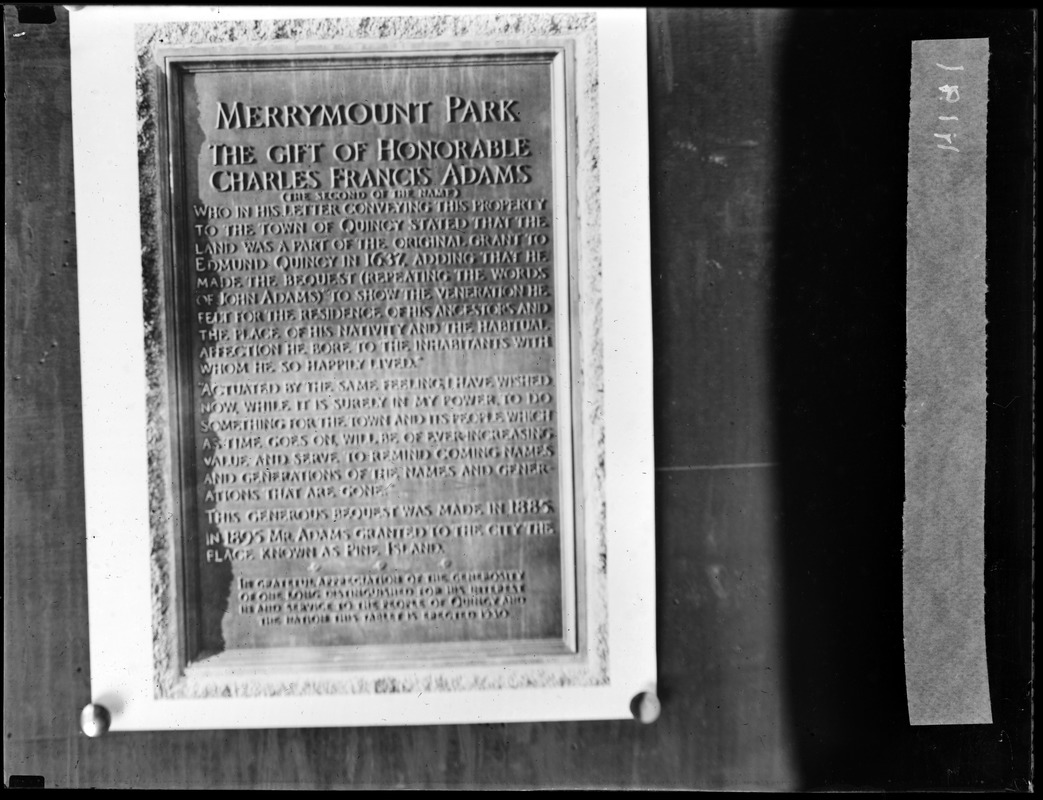 MERRYMOUNT PARK
THE GIFT OF HONORABLE
CHARLES FRANCIS ADAMS
(THE SECOND OF THE NAME)
WHO IN HIS LETTER CONVEYING THIS PROPERTY
TO THE TOWN OF QUINCY STATED THAT THE
LAND WAS A PART OF THE ORIGINAL GRANT TO
EDMUND QUINCY IN 1637, ADDING THAT HE
MADE THE BEQUEST (REPEATING THE WORDS
OF JOHN ADAMS) "TO SHOW THE VENERATION HE
FELT FOR THE RESIDENCE OF HIS ANCESTORS AND
THE PLACE OF HIS NATIVITY AND THE HABITUAL
AFFECTION HE BORE TO THE INHABITANTS WITH
WHOM HE SO HAPPILY LIVED."
"ACTUATED BY THE SAME FEELING I HAVE WISHED
NOW, WHILE IT IS SURELY IN MY POWER, TO DO
SOMETHING FOR THE TOWN AND ITS PEOPLE WHICH
AS TIME GOES ON, WILL BE OF EVER-INCREASING
VALUE AND SERVE TO REMIND COMING NAMES
AND GENERATIONS OF THE NAMES AND GENER-
ATIONS THAT ARE GONE."
THIS GENEROUS BEQUEST WAS MADE IN 1885.
IN 1895 MR. ADAMS GRANTED TO THE CITY THE
PLACE KNOWN AS PINE ISLAND.
IN GRATEFUL APPRECIATION OF THE GENEROSITY
OF ONE LONG DISTINGUISHED FOR HIS INTEREST
IN AND SERVICE TO THE PEOPLE OF QUINCY AND
THE NATION THIS TABLET IS ERECTED 1930.